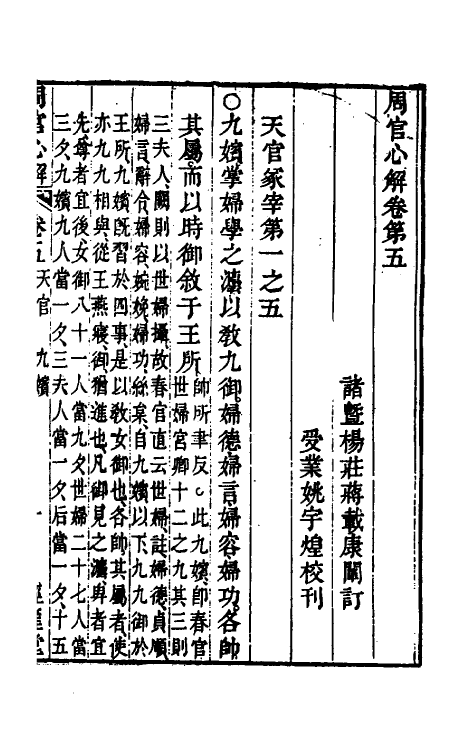 周官心解卷第五
諸暨楊莊蔣載康闡訂
受業姚宇煌校刊
天官冢宰第一之五
○九嬪掌婦學之灋以敎九御婦德婦言婦容婦功各帥
其屬而以時御敘于王所
帥所聿反○此九嬪卽春官
世婦宮卿十二之九其三則
三夫人闕則以世婦攝故春官直云世婦註婦德貞順
婦言辭令婦容婉娩婦功絲枲自九嬪以下九九御於
王所九嬪旣習於四事是以敎女御也各帥其屬者使
亦九九相與從王燕寢御猶進也凡御見之灋卑者宜
先尊者宜後女御八十一人當九夕世婦二十七人當
三夕九嬪九人當一夕三夫人當一夕后當一夕十五
周官心解 卷五 天官 九嬪 一